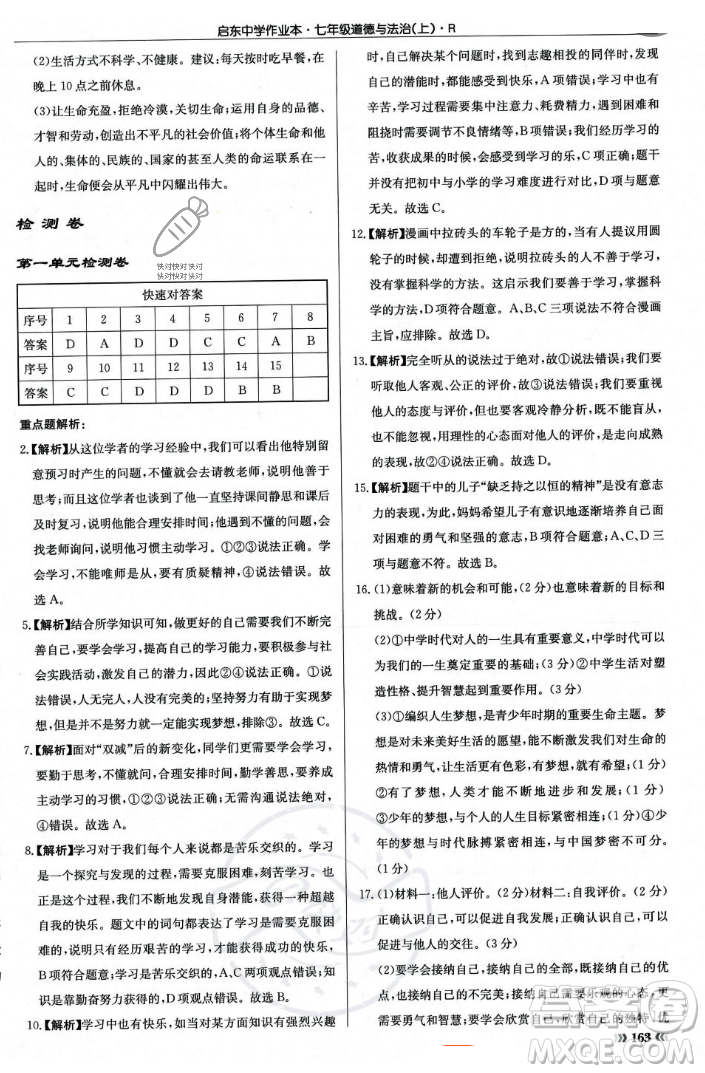 启东中学作业本·七年级道德与法治(上)·R
(2)生活方式不科学、不健康。建议:按时吃早餐,在
晚上10点之前休息。
(3)让生命充盈,拒绝冷漠,关切生命;运用自身的品德、
才智和劳动,创造出不平凡的社会价值;将个体生命和他
人的、集体的、民族的、国家的甚至人类的命运联系在一
起时,生命便会从平凡中闪耀出伟大。
检测卷
快对快对快对
快对快对快对
第一单元检测卷
快速对答案
序号 1 2 3 4 5 6 7 8
答案 D A D D C C A B
序号 9 10 11 12 13 14 15
答案 C C C D D B B
重点题解析:
2.【解析】从这位学者的学习经验中,我们可以看到他特别留
意预习时产生的问题,不懂就会去请教老师,说明他善于
思考;而且多年来他一直坚持课间静息和课后及时复习,
说明他能合理安排时间;他遇到不懂的问题,就会
找老师询问,说明他习惯主动学习。①②③说法正确。学
习中,不能唯师是从,要有质疑精神,④说法错误。故
选A。
5.【解析】结合所学知识可知,做更好的自己需要我们不断完
善自己,要乐于学习,提高自己的学习能力,要积极参与社
会实践活动,激发自己的潜力,②④说法正确,符合题意。①说
法错误,人无完人,人是没有完美的;坚持努力有助于实现梦
想,但是努力就一定能实现梦想,排除③。故选C。
7.【解析】面对“双减”后的新变化,同学们要学会学习,学习
要勤以动脑,不懂就问,合理安排时间,勤学善思,要养成
主动学习的习惯,①②③说法正确;无需沟通说法绝对,
④错误。故选A。
8.【解析】学习对于我们每个人来说都是苦乐交织的。学习
是一个探究与发现的过程,需要克服困难、刻苦学习,也
正是在这个过程中,我们不断地发现自己,获得一种超越
自我的快乐。题文中的词句都表明了学习是需要克服困
难的,说明我们只有经历艰苦,才能最终体会到快乐,B
项符合题意;学习是苦乐交织的,A、C、D项观点都过于片
面。故选B。
10.【解析】学习中也有快乐,如当对某方面知识有强烈兴趣
时,自己解决某个问题时,找到志趣相投的同伴时,发现
自己的潜能时,都可感受到快乐,A项错误;学习中也有
辛苦,学习过程需要集中注意力、耗费精力,遇到困难和
阻挠时需要调节不良情绪等,B项错误;我们经历学习的
苦,收获成果的时候,会感受到学习的美好,C项正确;题干
并没有对初中与小学的学习难度进行对比,D项与题意
无关。故选C。
12.【解析】漫画中拉砖头的车轮子是方的,当有人建议用圆
轮子的时候,却遭到了拒绝,说明拉砖头的人不善于学习,
没有掌握科学的方法。这启示我们要善于学习,
掌握科学的方法,D项符合题意;A、B、C三项不符合漫画
主旨,应排除。故选D。
13.【解析】完全听从的说法过于绝对,故①说法错误;我们要
听取他人客观、公正的评价,故③说法错误;我们要重视
他人的态度与评价,但也要客观冷静分析,既不能盲从,也
不能忽视,用理性的心态面对他人的评价,是走向成熟
的表现,故②④说法正确。故选D。
15.【解析】题干中的儿子“缺乏持之以恒的精神”是没有意志
力的表现,为此,妈妈希望儿子有意识地逐渐培养自己面
对困难的勇气和坚强的意志,B项符合题意;A、C、D三
项与题意不符。故选B。
16.(1)意味着新的机会和可能,(2分)意味着新的目标和
挑战。(2分)
(2)①中学时代对人的一生具有重要意义,中学时代可以
为我们的一生奠定重要的基础;(3分)②中学生活对塑
造性格、提升智慧起到重要作用。(3分)
(3)①编织人生梦想,是青少年时期的重要生命主题。梦想
是对未来美好生活的愿望,能不断激发我们对生命的
热情和勇气,让生活更有色彩;(3分)②有了梦想,就有了希望;(1分)
③少年的梦想,与个人的人生目标紧密相连;(1分)④少年的
梦想与时代脉搏紧密相连,与中国梦密不可分。
(1分)
17.(1)材料一:他人评价。(2分)材料二:自我评价。(2分)
正确认识自己,可以促进自我发展;正确认识自己,可以
促进与他人的交往。(3分)
(2)要学会接纳自己,既接纳自己的优点,也接纳自己的不
完美。(2分)接纳自己需要乐观的心态,更
需要勇气和智慧。要学会欣赏自己,欣赏自己的独特、优
163
MXQE.COM